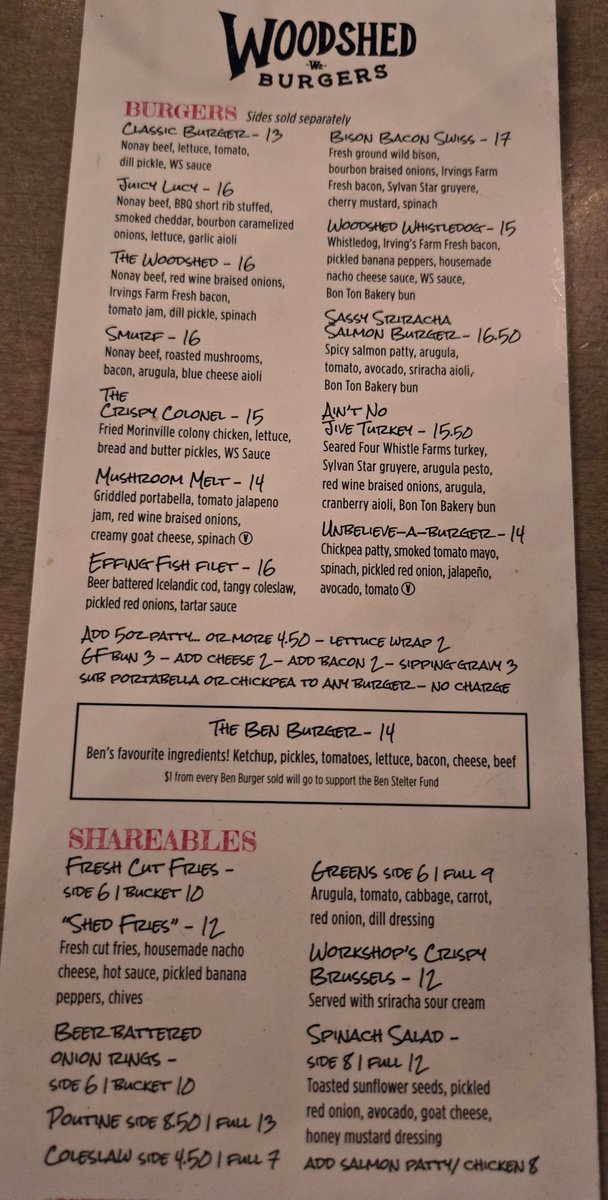 WOODSHED
-Ws-
BURGERS
BURGERS Sides sold separately
CLASSIC BURGER - 13
Nonay beef, lettuce, tomato,
dill pickle, WS sauce
JUICY LUCY - 16
Nonay beef, BBQ short rib stuffed,
smoked cheddar, bourbon caramelized
onions, lettuce, garlic aioli
THE WOODSHED - 16
Nonay beef, red wine braised onions,
Irvings Farm Fresh bacon,
tomato jam, dill pickle, spinach
SMURF - 16
Nonay beef, roasted mushrooms,
bacon, arugula, blue cheese aioli
THE
CRISPY COLONEL - 15
Fried Morinville colony chicken, lettuce,
bread and butter pickles, WS Sauce
MUSHROOM MELT - 14
Griddled portabella, tomato jalapeno
jam, red wine braised onions,
creamy goat cheese, spinach Ⓥ
EFFING FISH FILET - 16
Beer battered Icelandic cod, tangy coleslaw,
pickled red onions, tartar sauce
BISON BACON SWISS - 17
Fresh ground wild bison,
bourbon braised onions, Irvings Farm
Fresh bacon, Sylvan Star gruyere,
cherry mustard, spinach
WOODSHED WHISTLEDOG - 15
Whistledog, Irving's Farm Fresh bacon,
pickled banana peppers, housemade
nacho cheese sauce, WS sauce,
Bon Ton Bakery bun
SASSY SRIRACHA
SALMON BURGER - 16.50
Spicy salmon patty, arugula,
tomato, avocado, sriracha aioli,
Bon Ton Bakery bun
AIN'T NO
JIVE TURKEY - 15.50
Seared Four Whistle Farms turkey,
Sylvan Star gruyere, arugula pesto,
red wine braised onions, arugula,
cranberry aioli, Bon Ton Bakery bun
UNBELIEVE-A-BURGER - 14
Chickpea patty, smoked tomato mayo,
spinach, pickled red onion, jalapeño,
avocado, tomato Ⓥ
ADD 5OZ PATTY... OR MORE 4.50 - LETTUCE WRAP 2
GF BUN 3 - ADD CHEESE 2 - ADD BACON 2 - SIPPING GRAVY 3
SUB PORTABELLA OR CHICKPEA TO ANY BURGER - NO CHARGE
THE BEN BURGER - 14
Ben's favourite ingredients! Ketchup, pickles, tomatoes, lettuce, bacon, cheese, beef
$1 from every Ben Burger sold will go to support the Ben Stelter Fund
SHAREABLES
FRESH CUT FRIES -
SIDE 6 | BUCKET 10
"SHED FRIES" - 12
Fresh cut fries, housemade nacho
cheese, hot sauce, pickled banana
peppers, chives
BEER BATTERED
ONION RINGS -
SIDE 6 | BUCKET 10
POUTINE SIDE 8.50 | FULL 13
COLESLAW SIDE 4.50 | FULL 7
GREENS SIDE 6 | FULL 9
Arugula, tomato, cabbage, carrot,
red onion, dill dressing
WORKSHOP'S CRISPY
BRUSSELS - 12
Served with sriracha sour cream
SPINACH SALAD -
SIDE 8 | FULL 12
Toasted sunflower seeds, pickled
red onion, avocado, goat cheese,
honey mustard dressing
ADD SALMON PATTY/CHICKEN 8